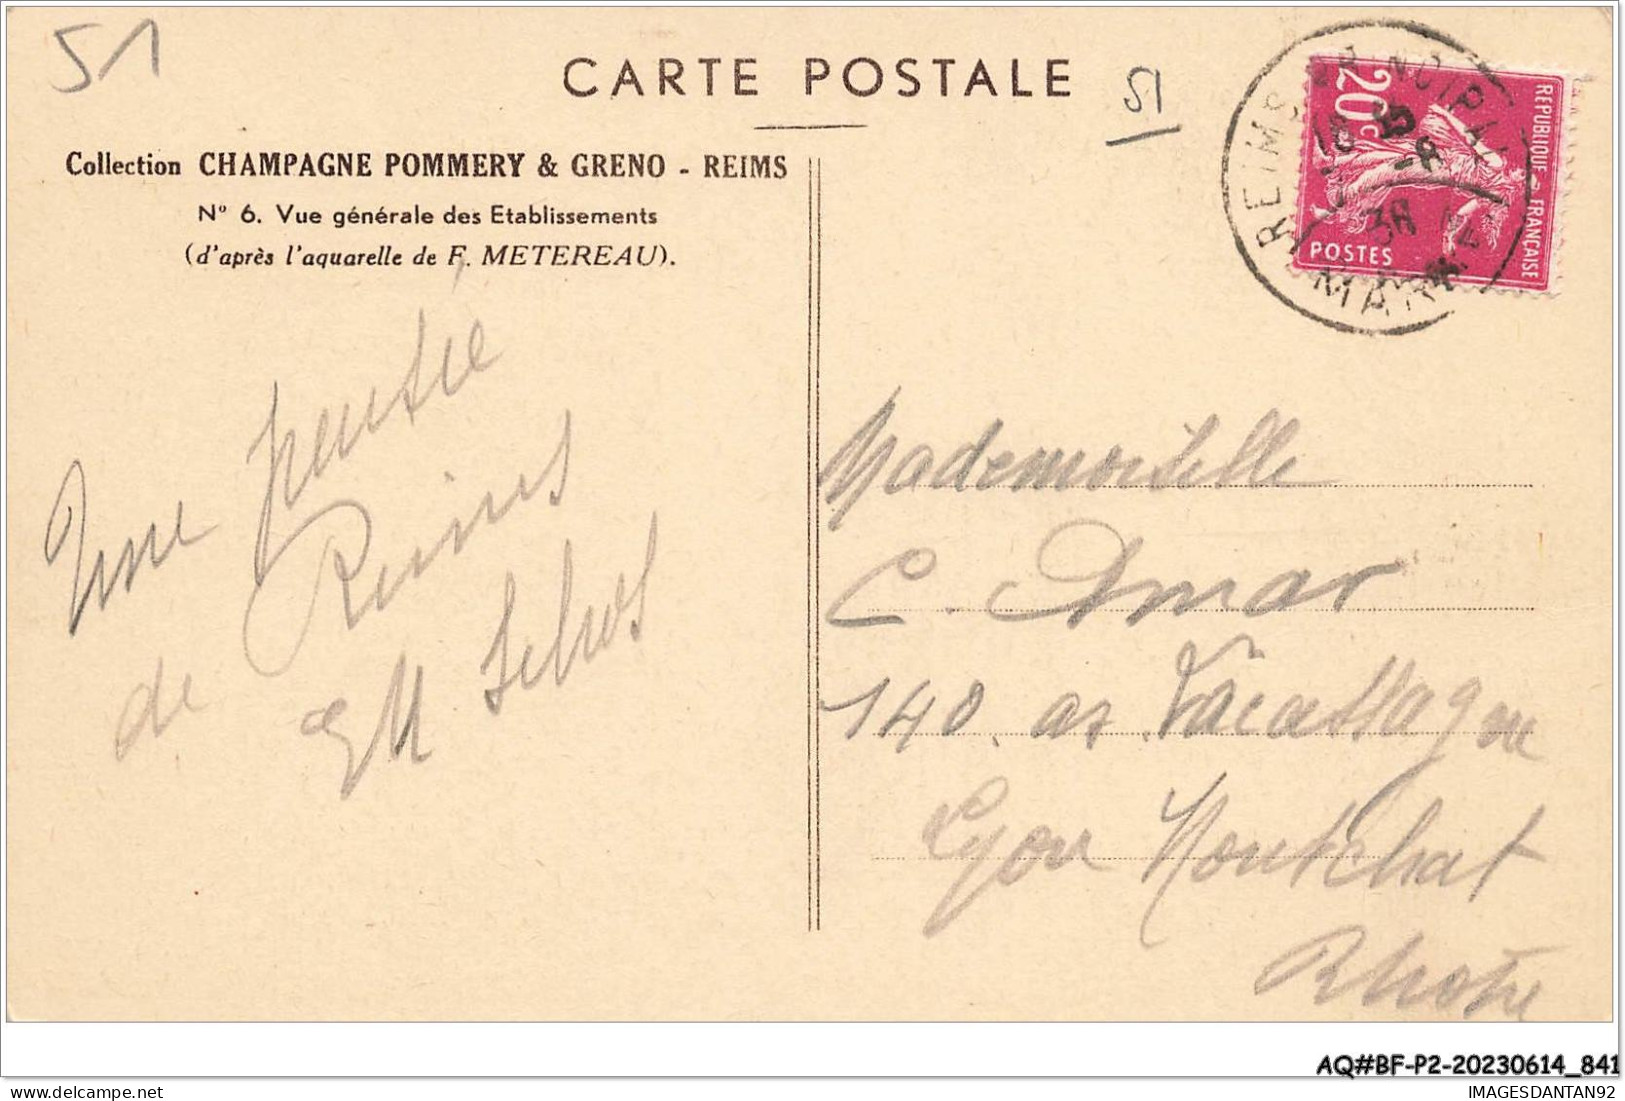 51
CARTE POSTALE
51
Collection CHAMPAGNE POMMERY & GRENO - REIMS
N° 6. Vue générale des Etablissements
(d'après l'aquarelle de F. METEREAU).
REIMS PRINCIPAL
18 35
-8
38
MARNE
20c
REPUBLIQUE FRANÇAISE
POSTES
Une pensée
de Reims
EM
Mademoiselle
C. Amar
140. as Lacassagne
Lyon Montchat
Rhône
AQ#BF-P2-20230614_841
delcampe.net
IMAGESDANTAN92